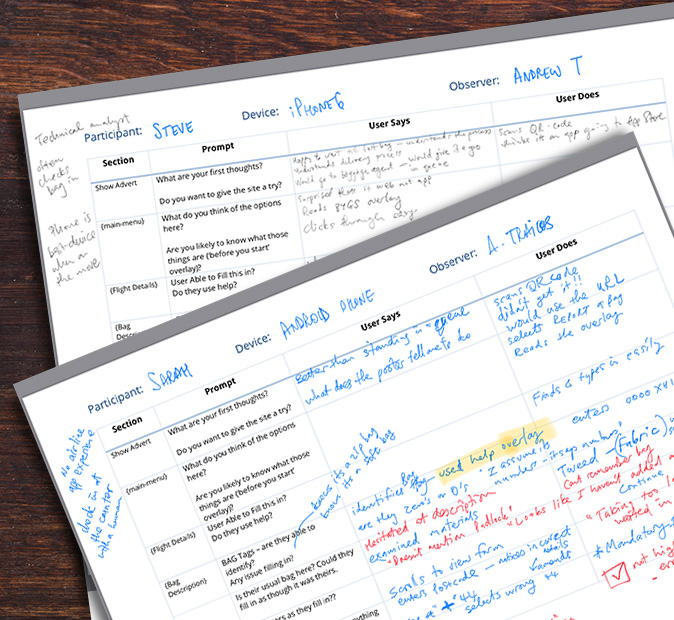 Technical analyst
often
checks
bag in
Phone is
best device
when on
the move
Participant: STEVE
Device: iPHONE6
Observer: ANDREW T
Section
Prompt
User Says
User Does
Show Advert
What are your first thoughts?
Do you want to give the site a try?
Understands delivery process
Would go to baggage agent - would give it a go
in queue
Surprised that it web not app
Reads BYGS overlay
Clicks through easy
Scans QR-code
thinks its an app going to App Store
{main-menu}
What do you think of the options
here?
Are you likely to know what those
things are (before you start'
overlay)?
{Flight Details}
User Able to Fill this in?
Do they use help?
{Bag
Participant: SARAH
Device: ANDROID PHONE
Observer: A. TRAICOS
Section
Prompt
User Says
User Does
no airline
app experience
check in at
the counter
with a human
Show Advert
What are your first thoughts?
Do you want to give the site a try?
Better than standing in a queue
what does the poster tell me to do
scans QR code
didn't get it!!
would use the URL
selects REPORT A Bag
Reads the overlay
{main-menu}
What do you think of the options
here?
Are you likely to know what those
things are (before you start'
overlay)?
Finds & types in easily
{Flight Details}
User Able to Fill this in?
Do they use help?
knows its a soft bag
enters 0000X4
{Bag
Description}
BAG Tags – are they able to
identify?
Any issue filling in?
Is their usual bag here? Could they
fill in as though it was theirs.
identifies Bag
Tag - used help overlay
are they zero's or O's - I assume its
number - its rep number"
Hesitated at description
examined materials
"Doesn't mention Padlock"
"Looks like I haven't added a
Tweed - (Fabric)
Cant remember bag
"Taking too
Continue
wasted in
Scrolls to view form
enters postcode - notices incorrect
details
amends
selects wrong +44
* Mandatory
not hig
ers as they fill in??